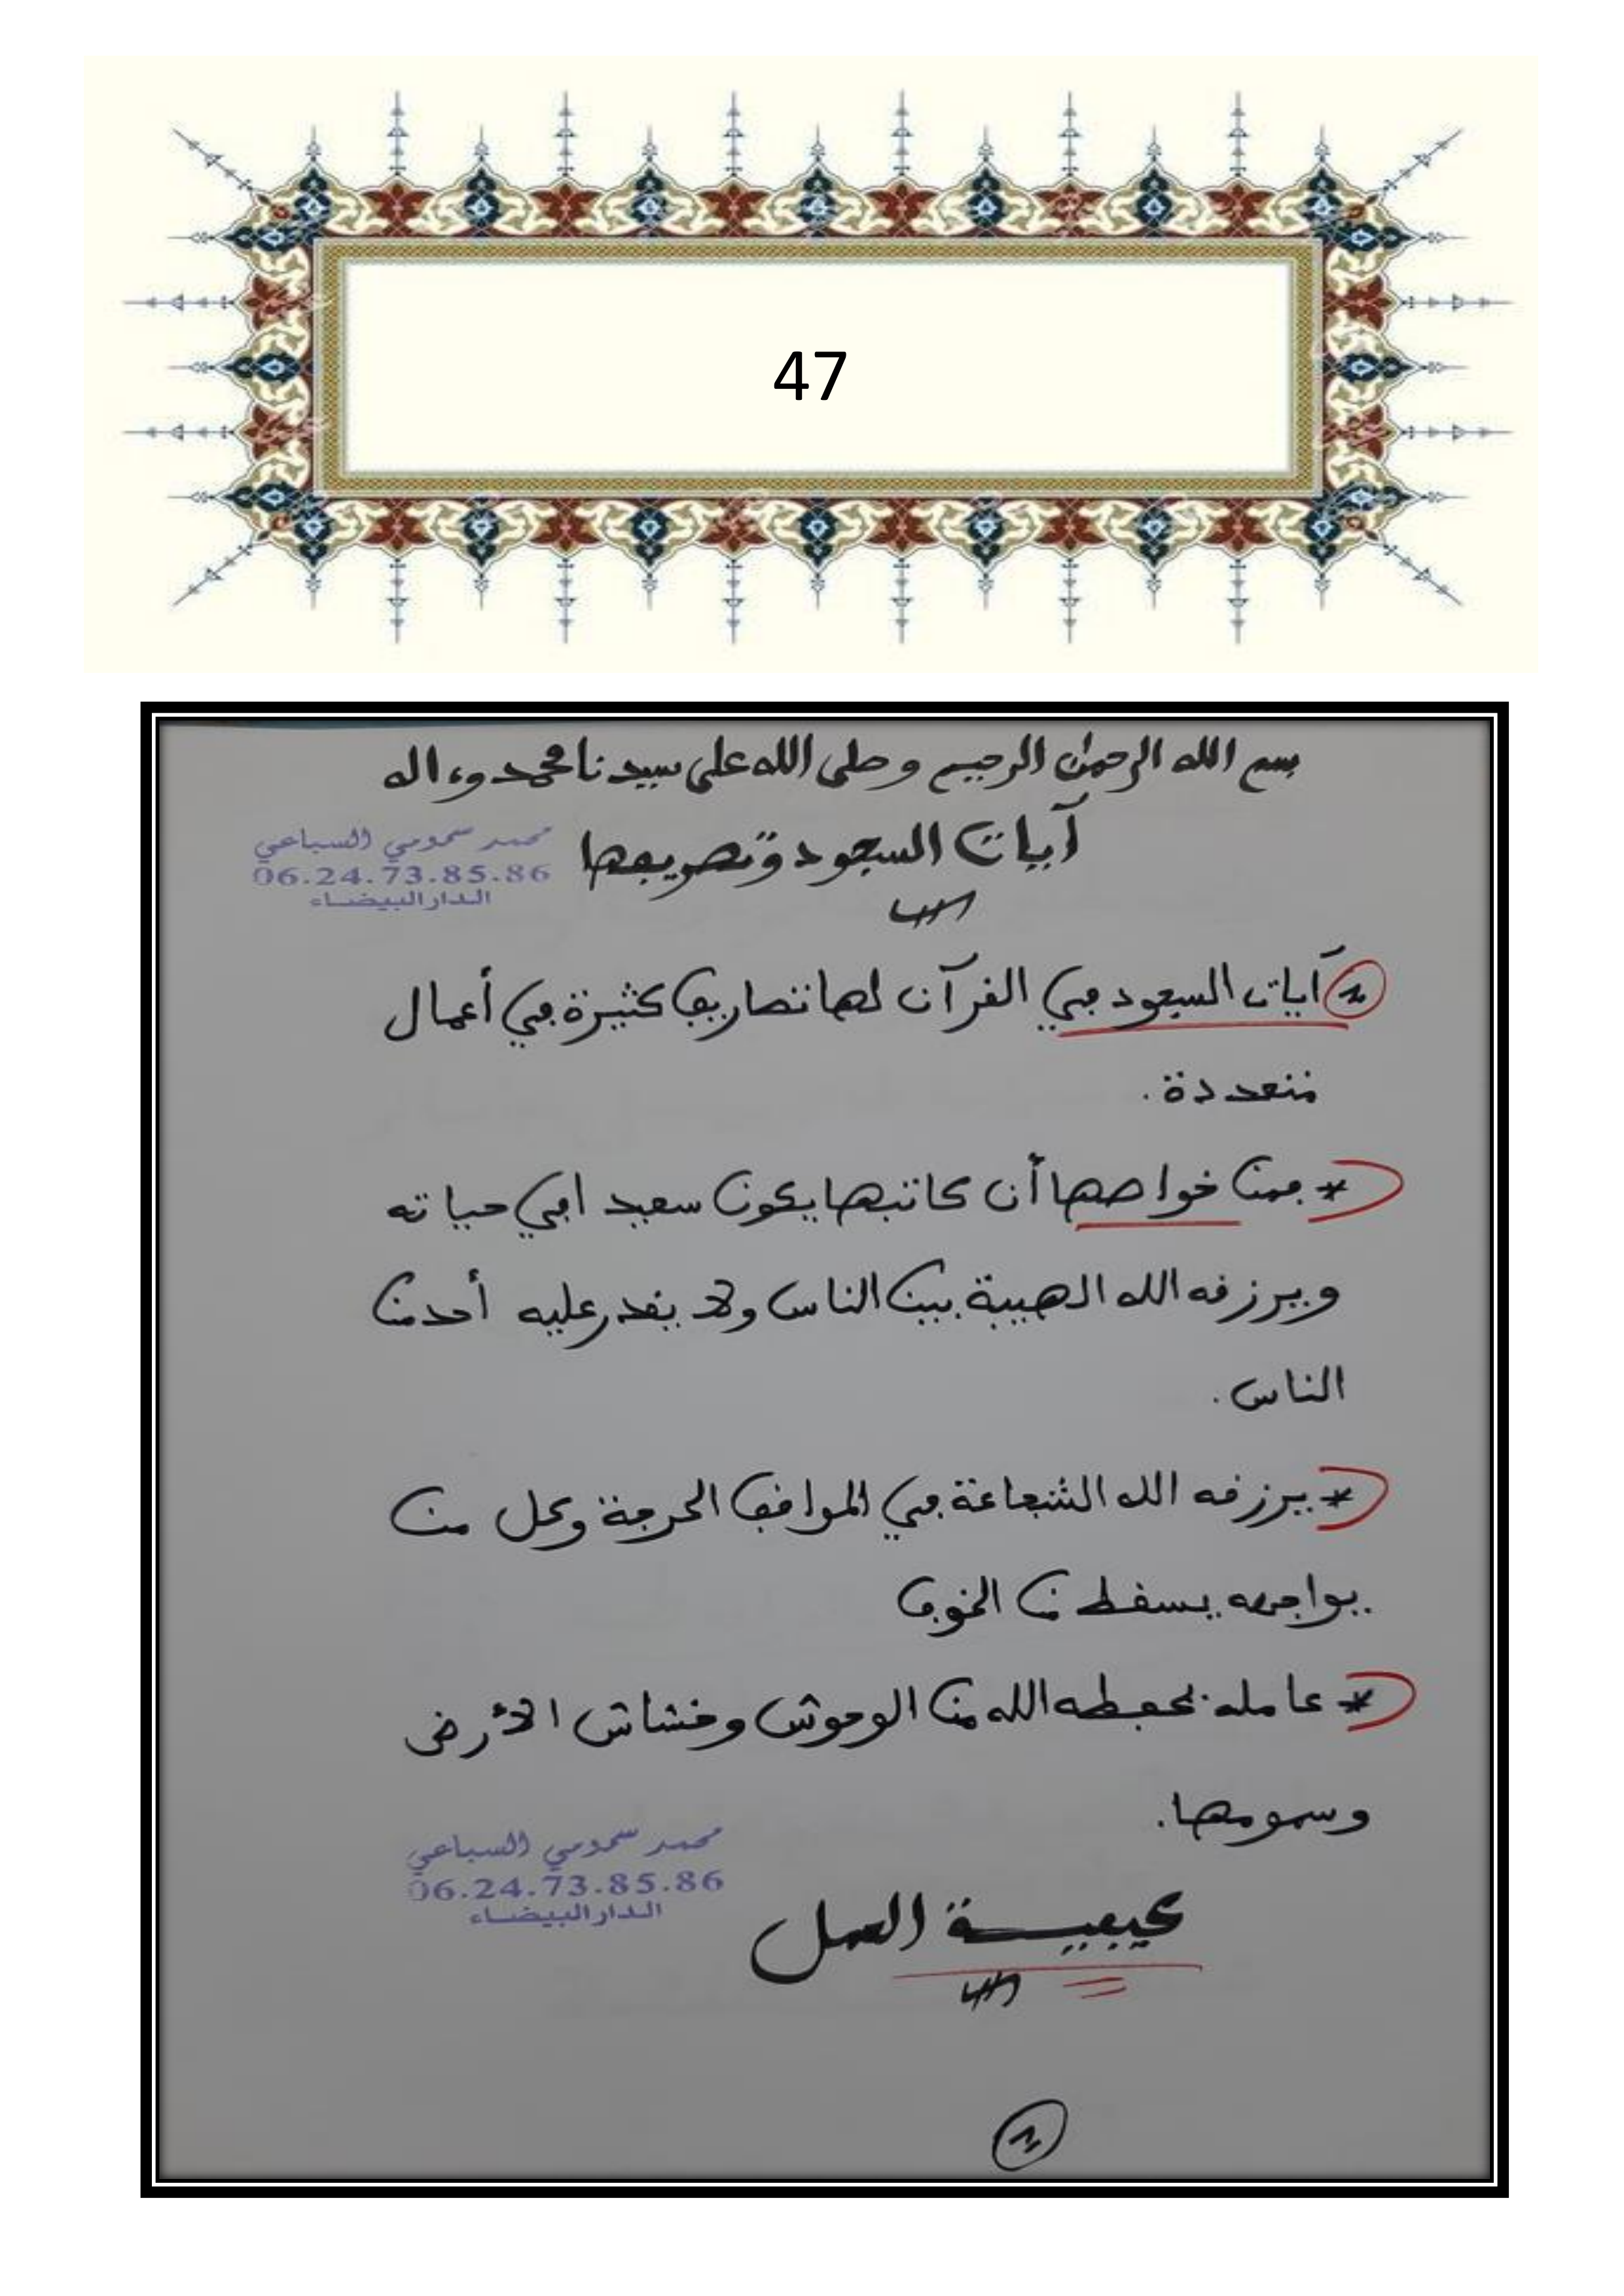 47
بسم الله الرحمن الرحيم وصلى الله على سيدنا محمد وءاله
آيات السجود وتصريفها
محمد سحومي السباعي
06.24.73.85.86
الدار البيضاء
آيات السجود في القرآن لها تصاريف كثيرة في أعمال
متعددة.
* فمن خواصها أن كاتبها يكون سعيدا في حياته
ويرزقه الله الهيبة بين الناس ولا يقدر عليه أحد من
الناس.
* يرزقه الله الشجاعة في المواقف الحرجة وكل من
يواجهه يسقط من الخوف
* عامله يحفظه الله من الوحوش وخشاش الأرض
وسمومها.
محمد سحومي السباعي
06.24.73.85.86
الدار البيضاء
كيفية العمل
1